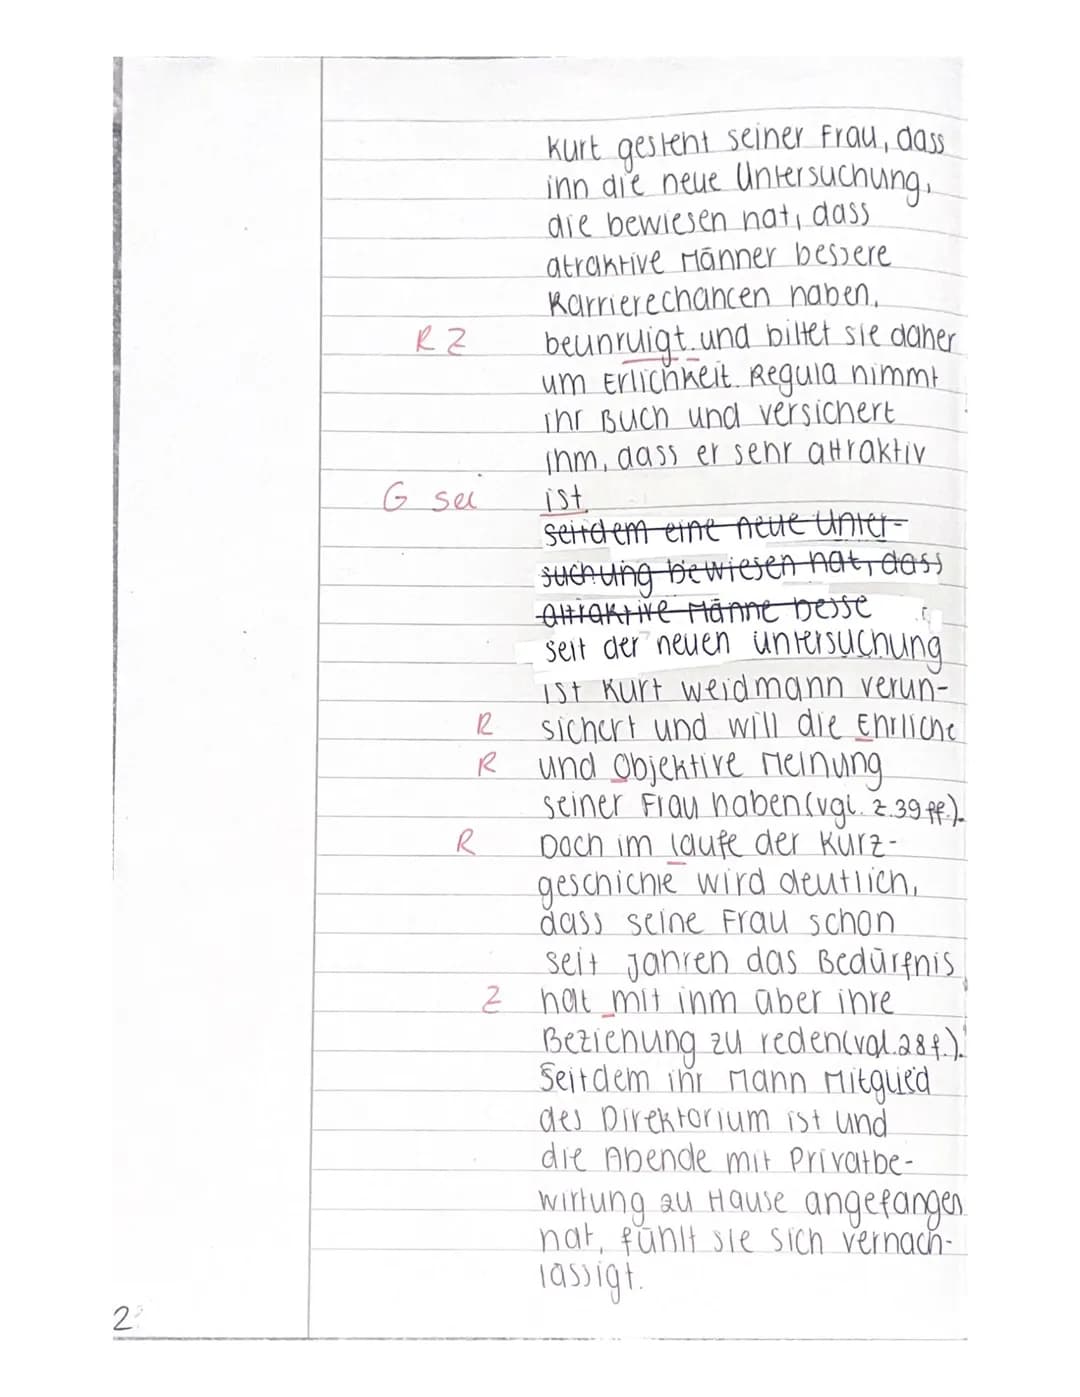 Kurt gesteht seiner Frau, dass
ihn die neue Untersuchung,
die bewiesen hat, dass
atraktive Männer bessere
Karrierechancen haben,
R Z beunruigt und bittet sie daher
um Erlichkeit. Regula nimmt
ihr Buch und versichert
ihm, dass er sehr attraktiv
G sei ist.
seitdem eine neue Unter-
suchung bewiesen hat, dass
attraktive Männe besse
seit der neuen Untersuchung
ist Kurt Weidmann verun-
R sichert und will die Ehrliche
R und Objektive Meinung
seiner Frau haben (vgl. Z.39 ff.).
R Doch im laufe der Kurz-
geschichte wird deutlich,
dass seine Frau schon
seit Jahren das Bedürfnis
Z hat mit ihm über ihre
Beziehung zu reden (vgl. 28 f.).
Seitdem ihr Mann Mitglied
des Direktorium ist und
die Abende mit Privatbe-
wirtung zu Hause angefangen
hat, fühlt sie sich vernach-
lässigt.
2